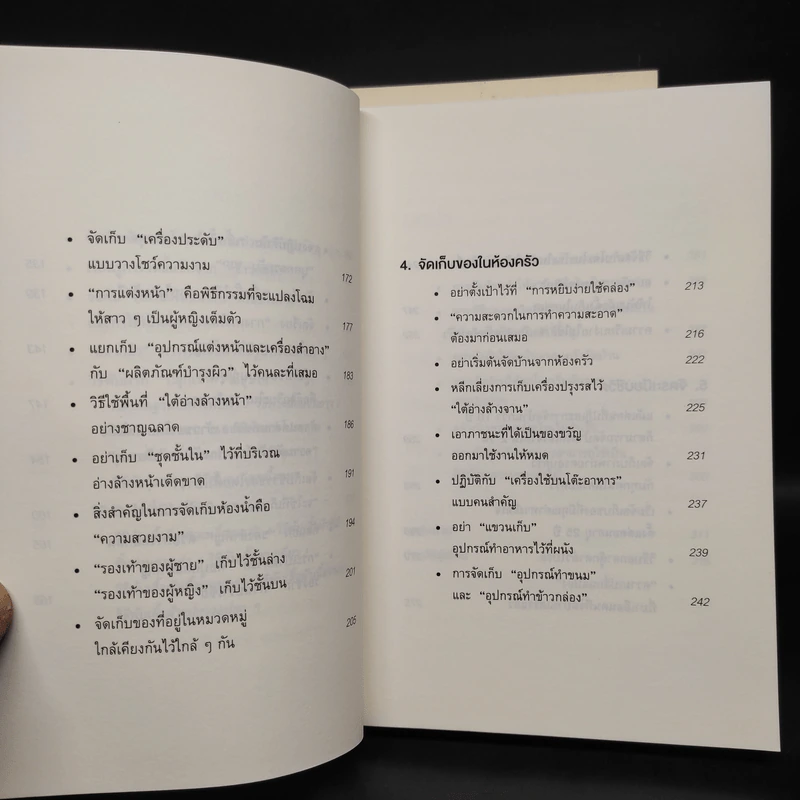 • จัดเก็บ “เครื่องประดับ”
แบบวางโชว์ความงาม 172
• “การแต่งหน้า” คือพิธีกรรมที่จะแปลงโฉม
ให้สาว ๆ เป็นผู้หญิงเต็มตัว 177
• แยกเก็บ “อุปกรณ์แต่งหน้าและเครื่องสำอาง”
กับ “ผลิตภัณฑ์บำรุงผิว” ไว้คนละที่เสมอ 183
• วิธีใช้พื้นที่ “ใต้อ่างล้างหน้า”
อย่างชาญฉลาด 186
• อย่าเก็บ “ชุดชั้นใน” ไว้ที่บริเวณ
อ่างล้างหน้าเด็ดขาด 191
• สิ่งสำคัญในการจัดเก็บห้องน้ำคือ
“ความสวยงาม” 194
• “รองเท้าของผู้ชาย” เก็บไว้ชั้นล่าง
“รองเท้าของผู้หญิง” เก็บไว้ชั้นบน 201
• จัดเก็บของที่อยู่ในหมวดหมู่
ใกล้เคียงกันไว้ใกล้ ๆ กัน 205
4. จัดเก็บของในห้องครัว
• อย่าตั้งเป้าไว้ที่ “การหยิบง่ายใช้คล่อง” 213
• “ความสะดวกในการทำความสะอาด”
ต้องมาก่อนเสมอ 216
• อย่าเริ่มต้นจัดบ้านจากห้องครัว 222
• หลีกเลี่ยงการเก็บเครื่องปรุงรสไว้
“ใต้อ่างล้างจาน” 225
• เอาภาชนะที่ได้เป็นของขวัญ
ออกมาใช้งานให้หมด 231
• ปฏิบัติกับ “เครื่องใช้บนโต๊ะอาหาร”
แบบคนสำคัญ 237
• อย่า “แขวนเก็บ”
อุปกรณ์ทำอาหารไว้ที่ผนัง 239
• การจัดเก็บ “อุปกรณ์ทำขนม”
และ “อุปกรณ์ทำข้าวกล่อง” 242